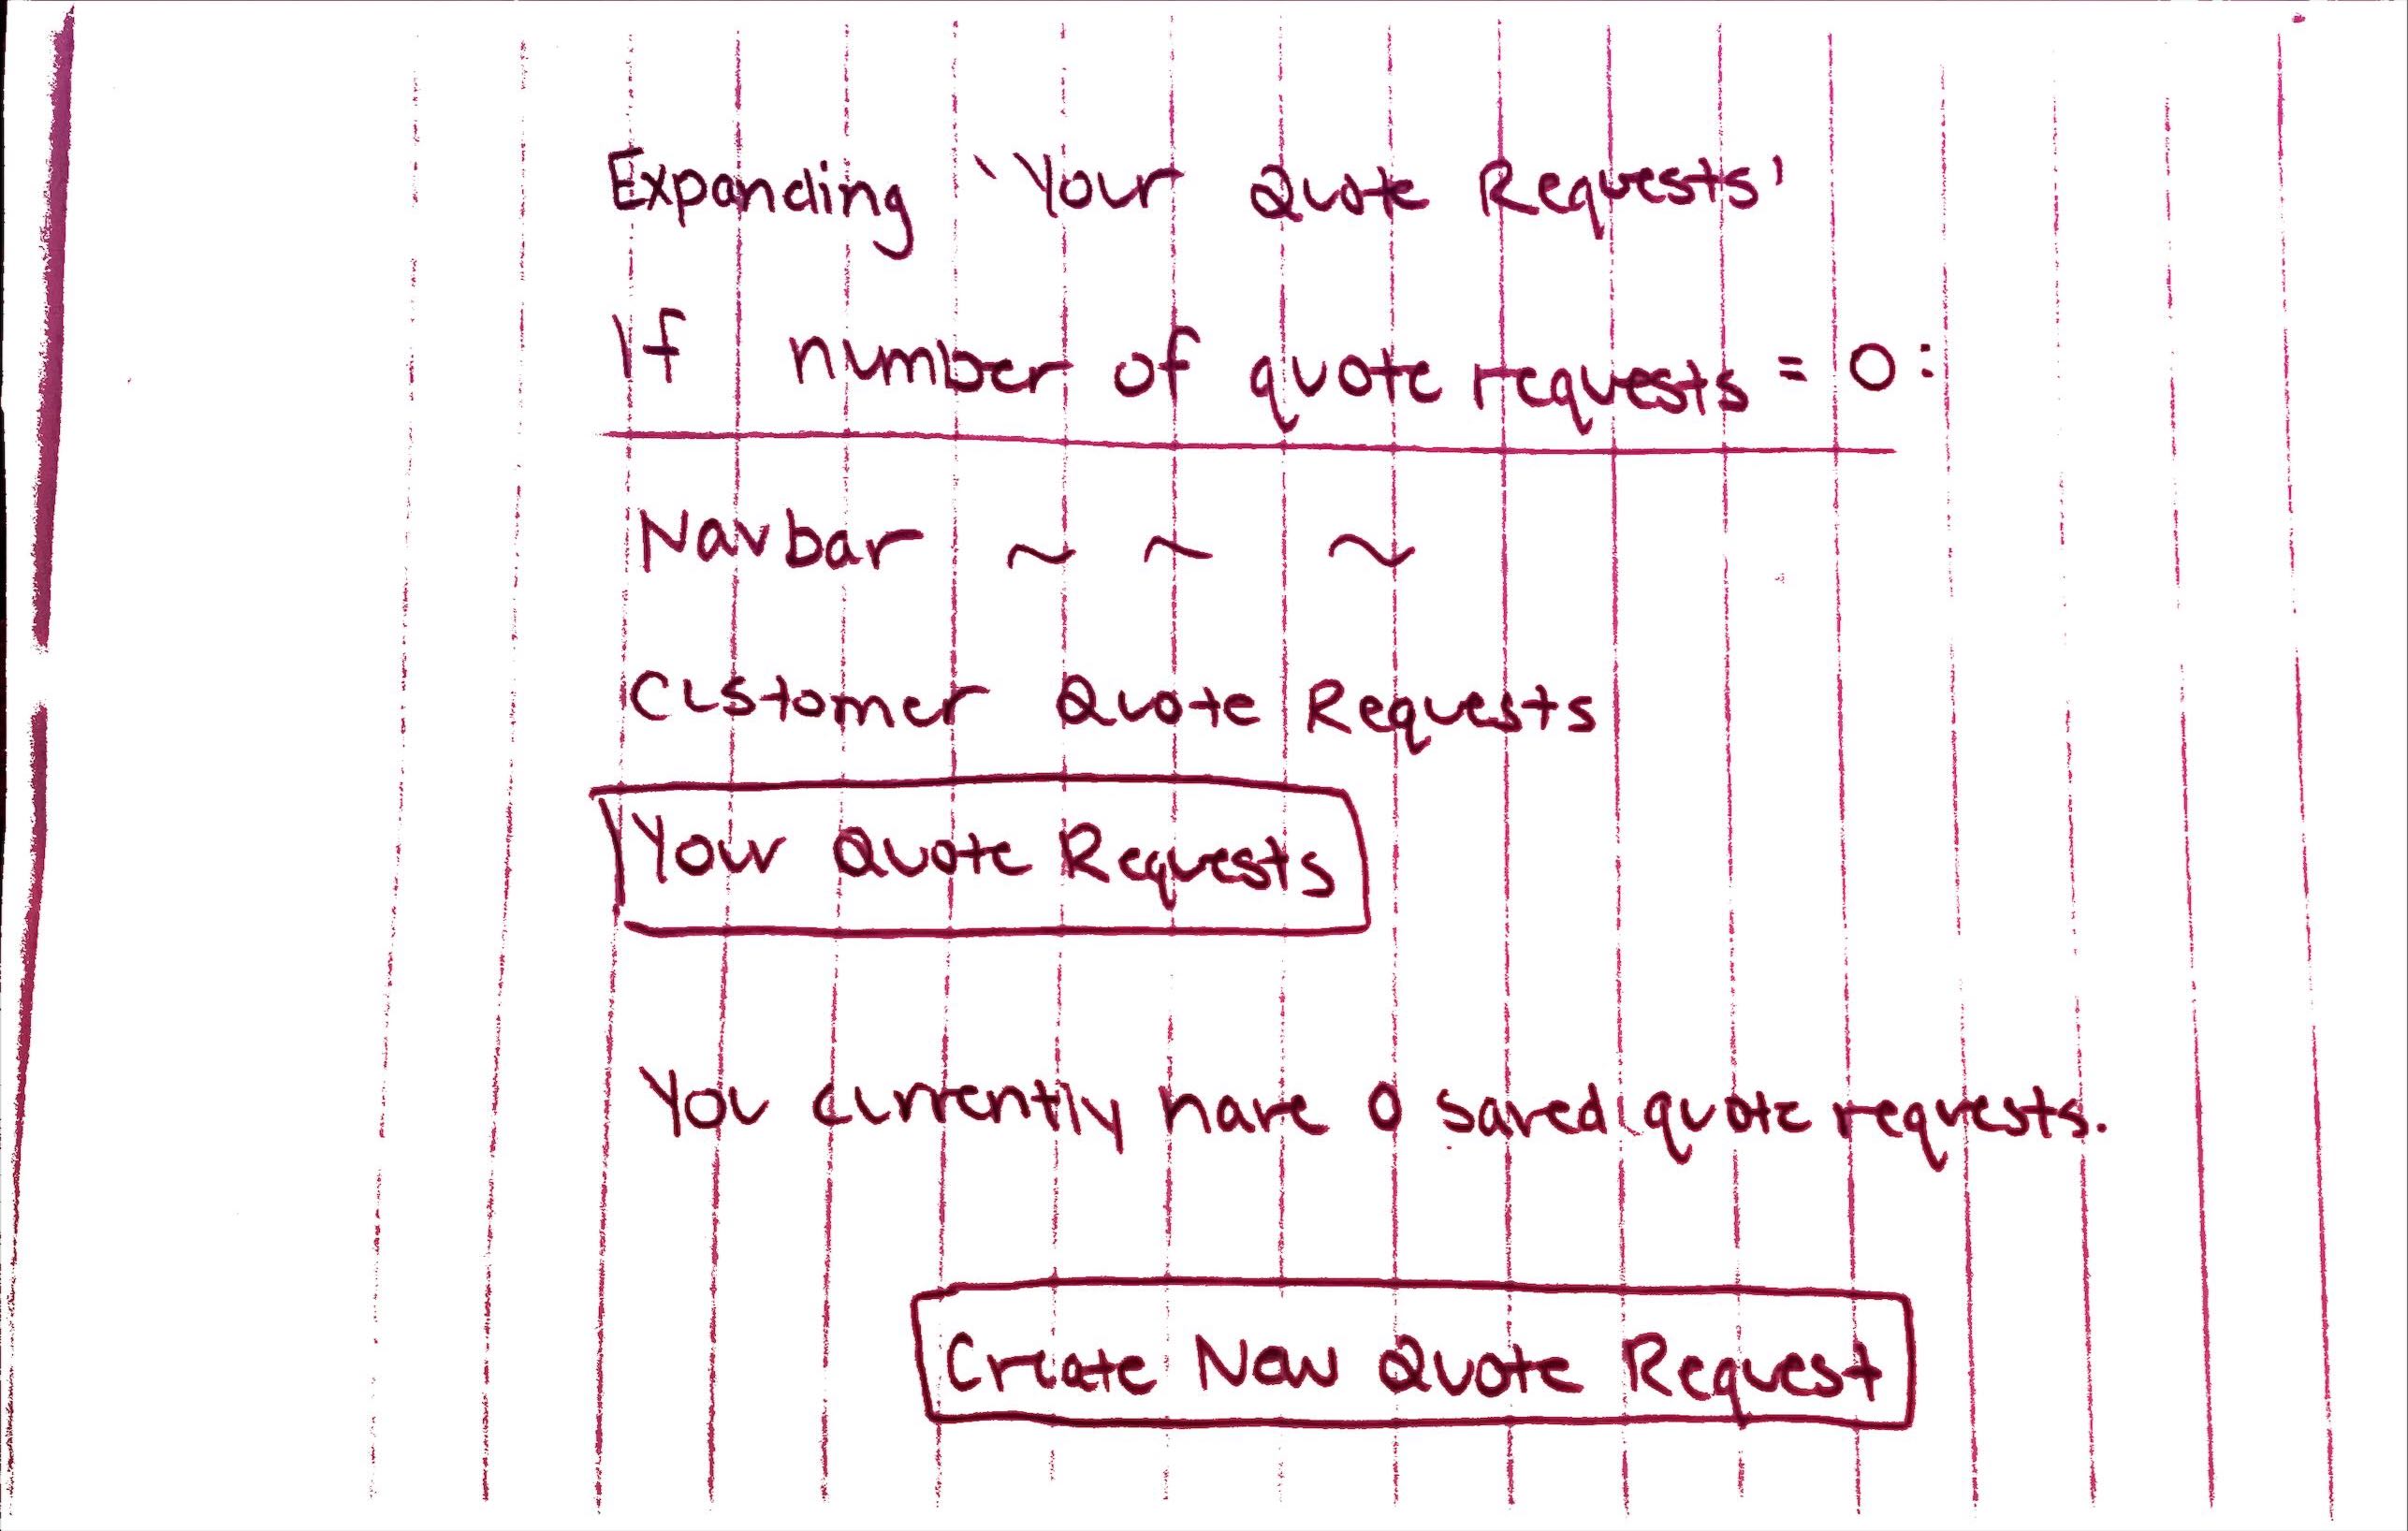 Expanding 'Your Quote Requests'
If number of quote requests = 0:
Navbar ~ ~ ~
Customer Quote Requests
Your Quote Requests
You currently have 0 saved quote requests.
Create New Quote Request